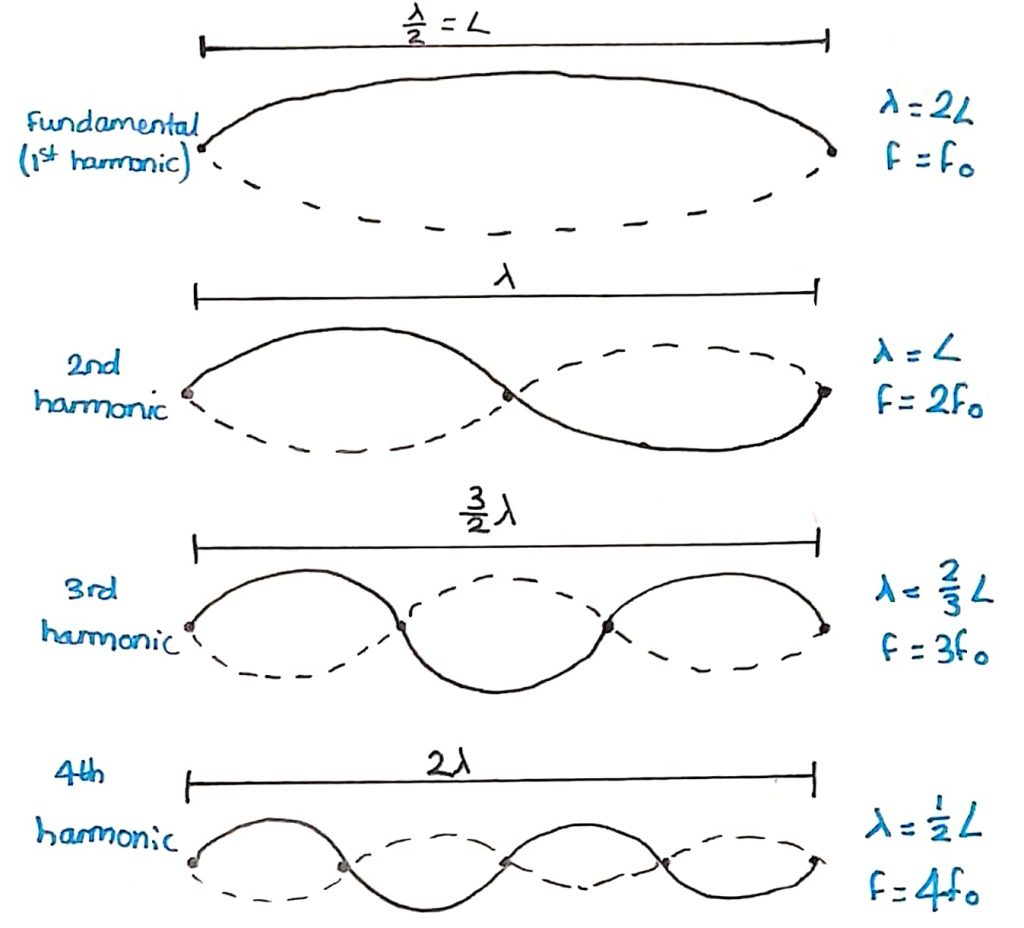 λ/2 = L
Fundamental
(1st harmonic)
λ = 2L
f = f₀
λ
2nd
harmonic
λ = L
f = 2f₀
3/2 λ
3rd
harmonic
λ = 2/3 L
f = 3f₀
2λ
4th
harmonic
λ = 1/2 L
f = 4f₀